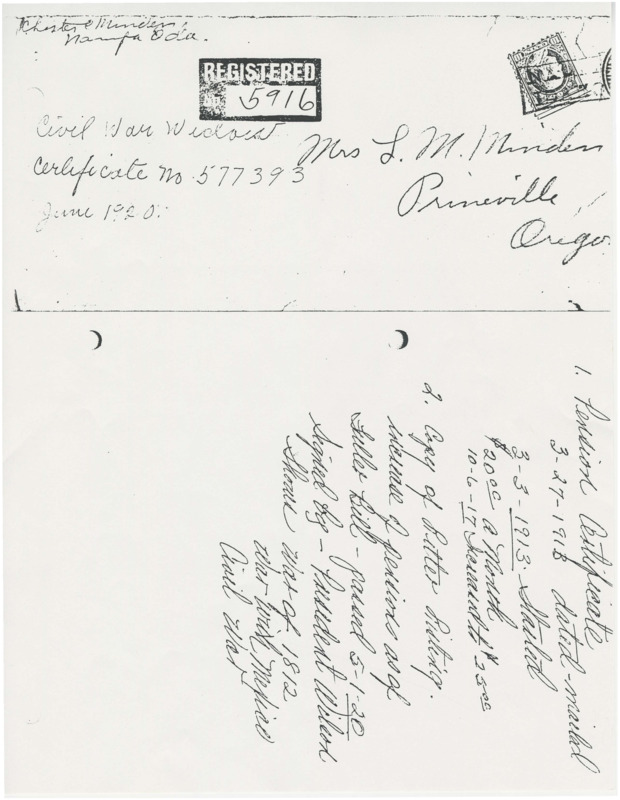 Chester C Minden,
Nampa Ida.
REGISTERED
No. 5916
Civil War Widows
Certificate No 577393
June 1920.
Mrs L. M. Minden
Prineville
Orego
1. Pension Certificate
3-27-1918 dated-mailed
3-3-1913 Started
$20.00 a Month
10-6-17 Increased to $25.00
2. Copy of Letter Listing.
increase of pensions as of
Fuller Bill - passed 5-1-20
Signed by - President Wilson
Shows War of 1812
War with Mexico
Civil War